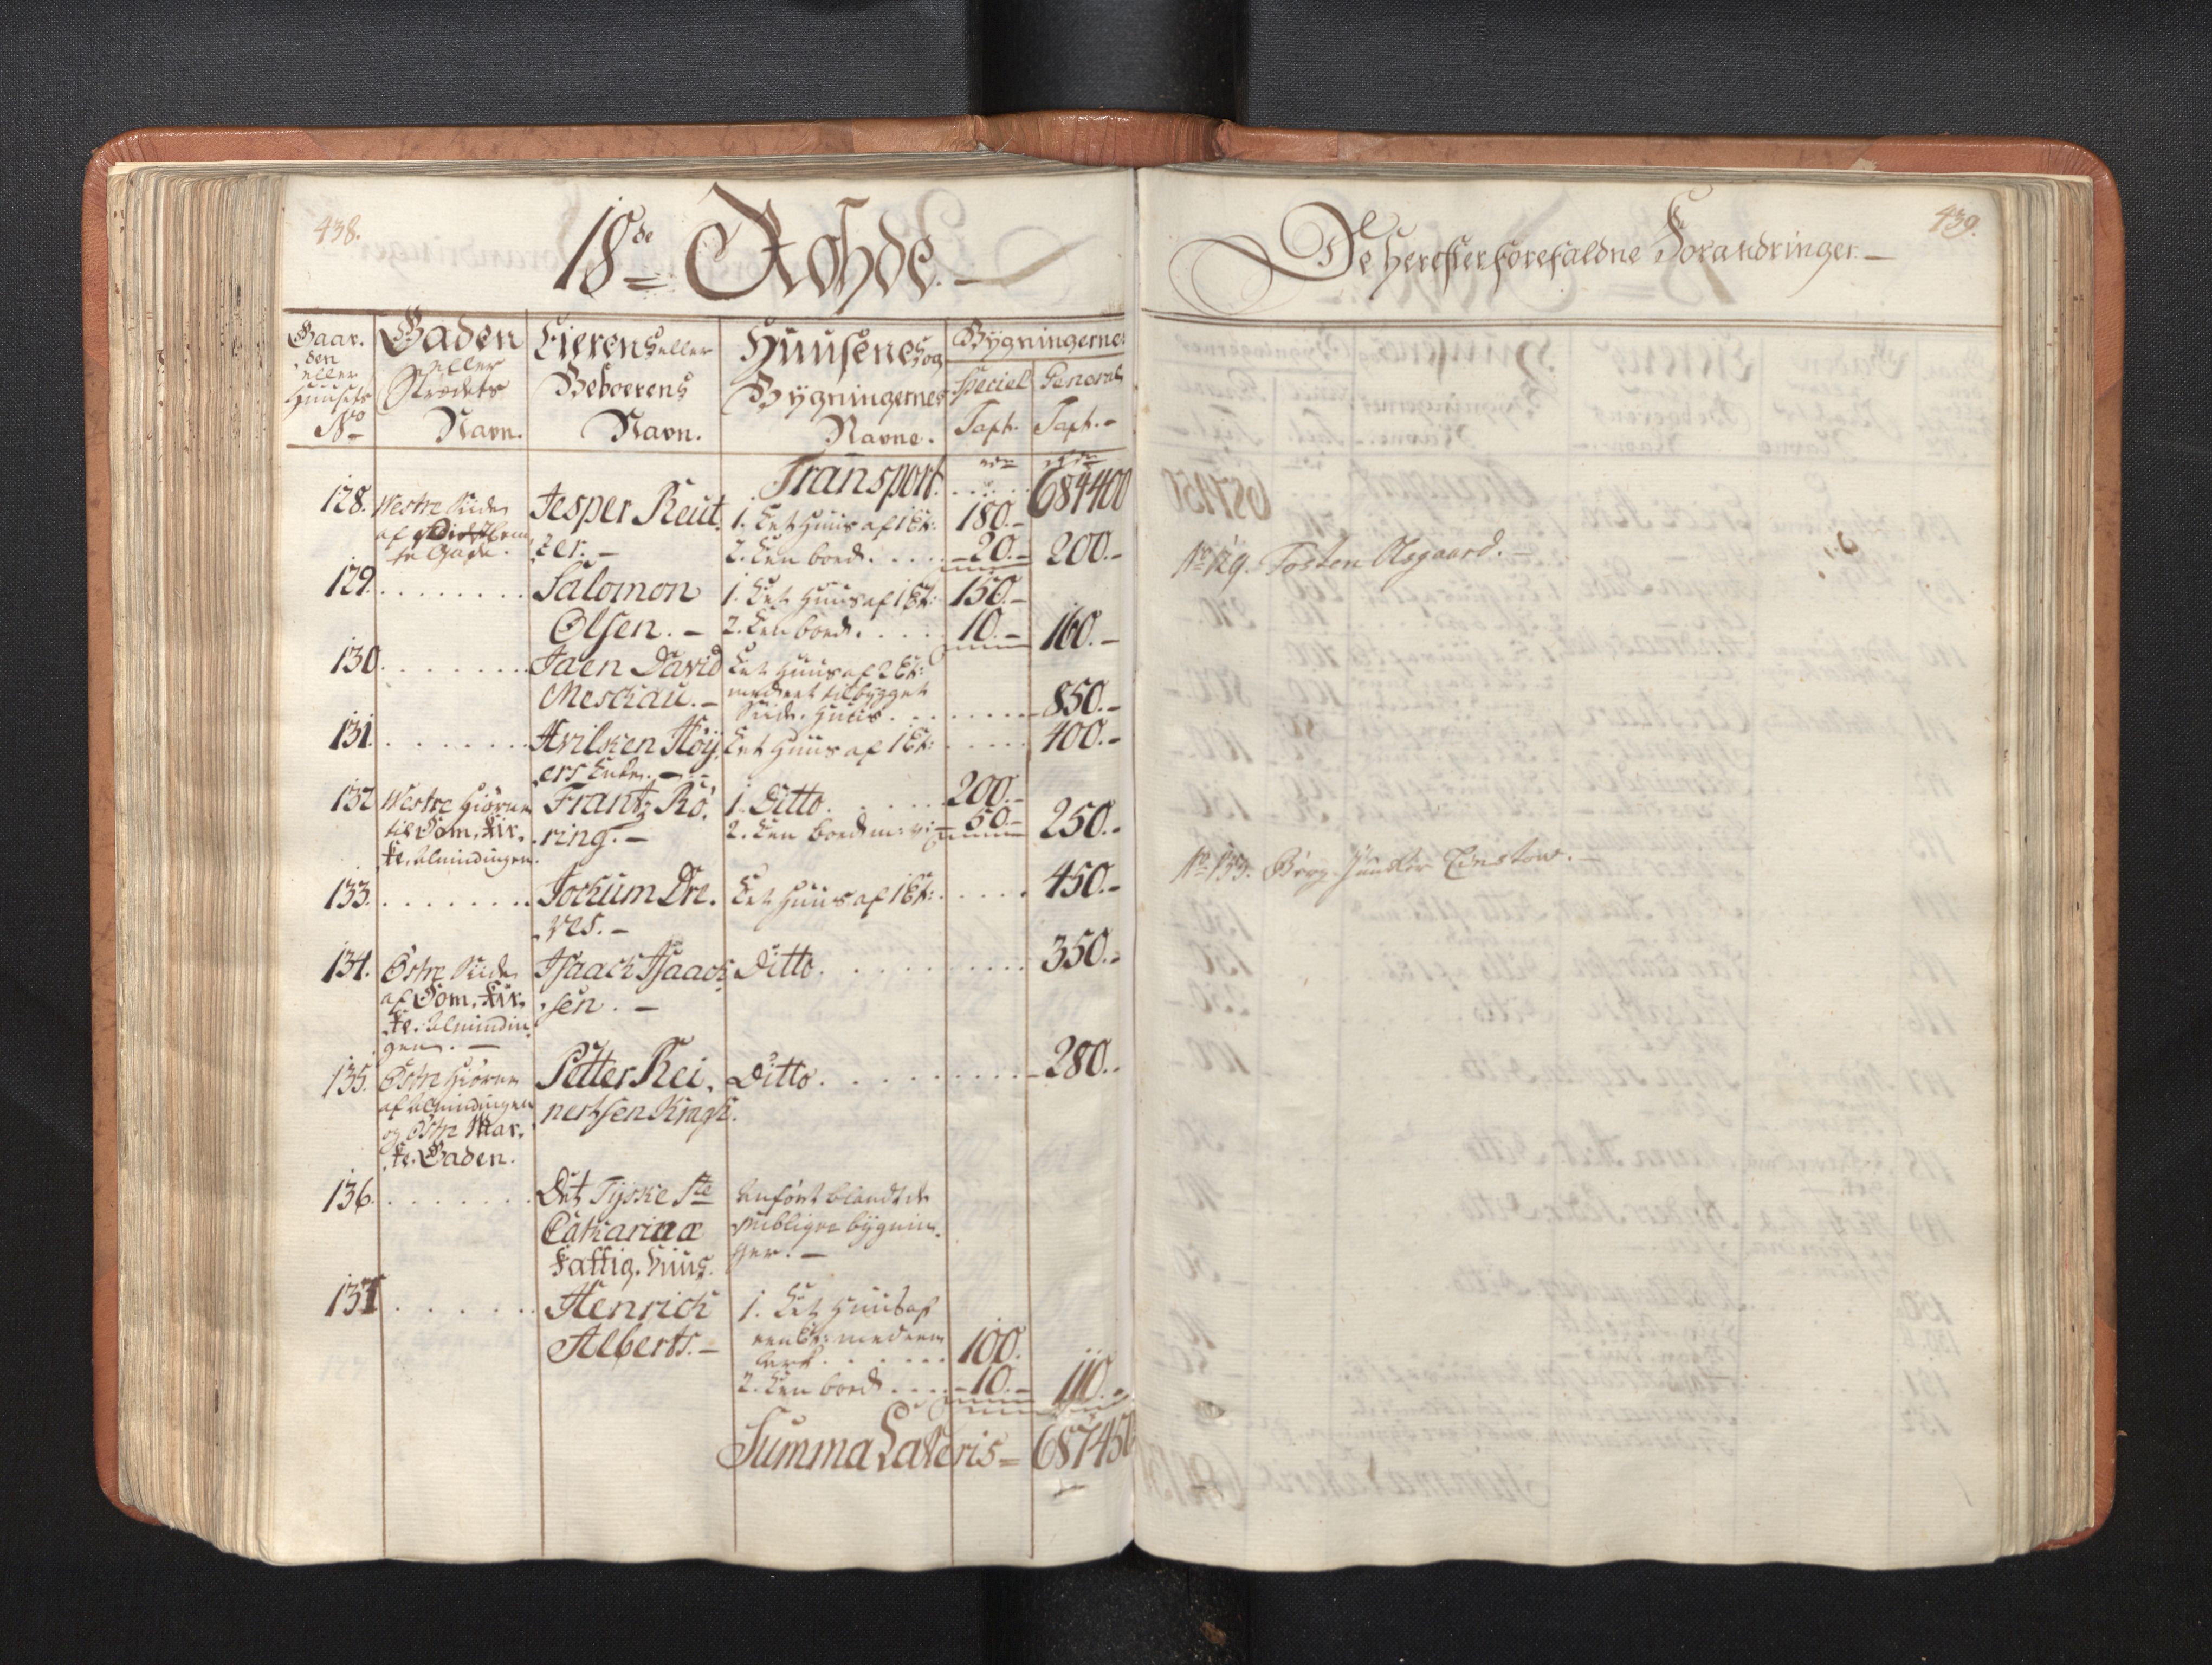 438.
18de Rohde.
Gaar-
den
eller
Huusets
No
Gaden
eller
Strædets
Navn.
Eierens eller
Beboerens
Navn.
Huusenes og
Bygningernes
Navne.
Bygningernes
Speciel
Taxt.
General
Taxt.
Transport. . . . 684400
128. Westre Side
af
te Gade.
Jesper Reut-
zer.
1. Et Huus af 1 Et: 180.
2. Een boed . . . . 20. 200.
129. . . . . . . . Salomon
Olsen.
1. Et Huus af 1 Et: 150.
2. Een boed . . . . 10. 160.
130. . . . . . . . Jaen David
Meschau.
Et Huus af 2 Et:
med eet tilbygget
Side-Huus . . . . . . 850.
131. . . . . . . . Avilken Höy-
ers Enke.
Et Huus af 1 Et: . . . . . 400.
132. Westre Hiørne
til Dom-Kir-
ke-Almindingen.
Frantz Rö-
ring.
1. Ditto. . . . . . 200.
2. Een boed 50. 250.
133. . . . . . . . Jochum Dre-
ves.
Et Huus af 1 Et: . . . . . 450.
134. Østre Side
af Dom-Kir-
ke-Almindin-
gen.
Isaach Isaach-
sen.
Ditto. . . . . . . . 350.
135. Østre Hiørne
af Almindingen
og Østre Mar-
ke-Gaden.
Petter Rei-
nertsen Kragh.
Ditto. . . . . . . . 280.
136. . . . . . . . Det Tyske Ste
Catharinæ
Fattig-Huus.
Anført blandt de
publiqve bygnin-
ger.
137. . . . . . . . Henrich
Alberts.
1. Et Huus af
een Et: med een
Ark . . . . . . 100.
2. Een boed . . . . 10. 110.
Summa Lateris = 687450
439.
De herefter forefaldne Forandringer.
No 129. Tosten Olsgaard.
No 133. Einstow.